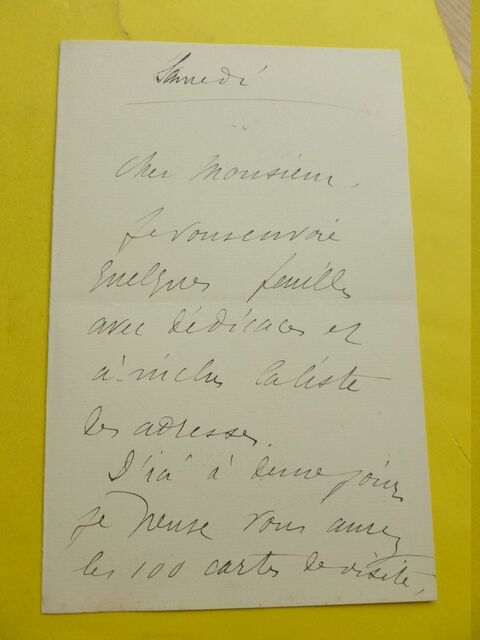 Samedi
Cher Monsieur,
Je vous envoie
quelques feuilles
avec dédicaces et
ci-inclus la liste
des adresses.
D'ici à deux jours
je pense vous aurez
les 100 cartes de visite,